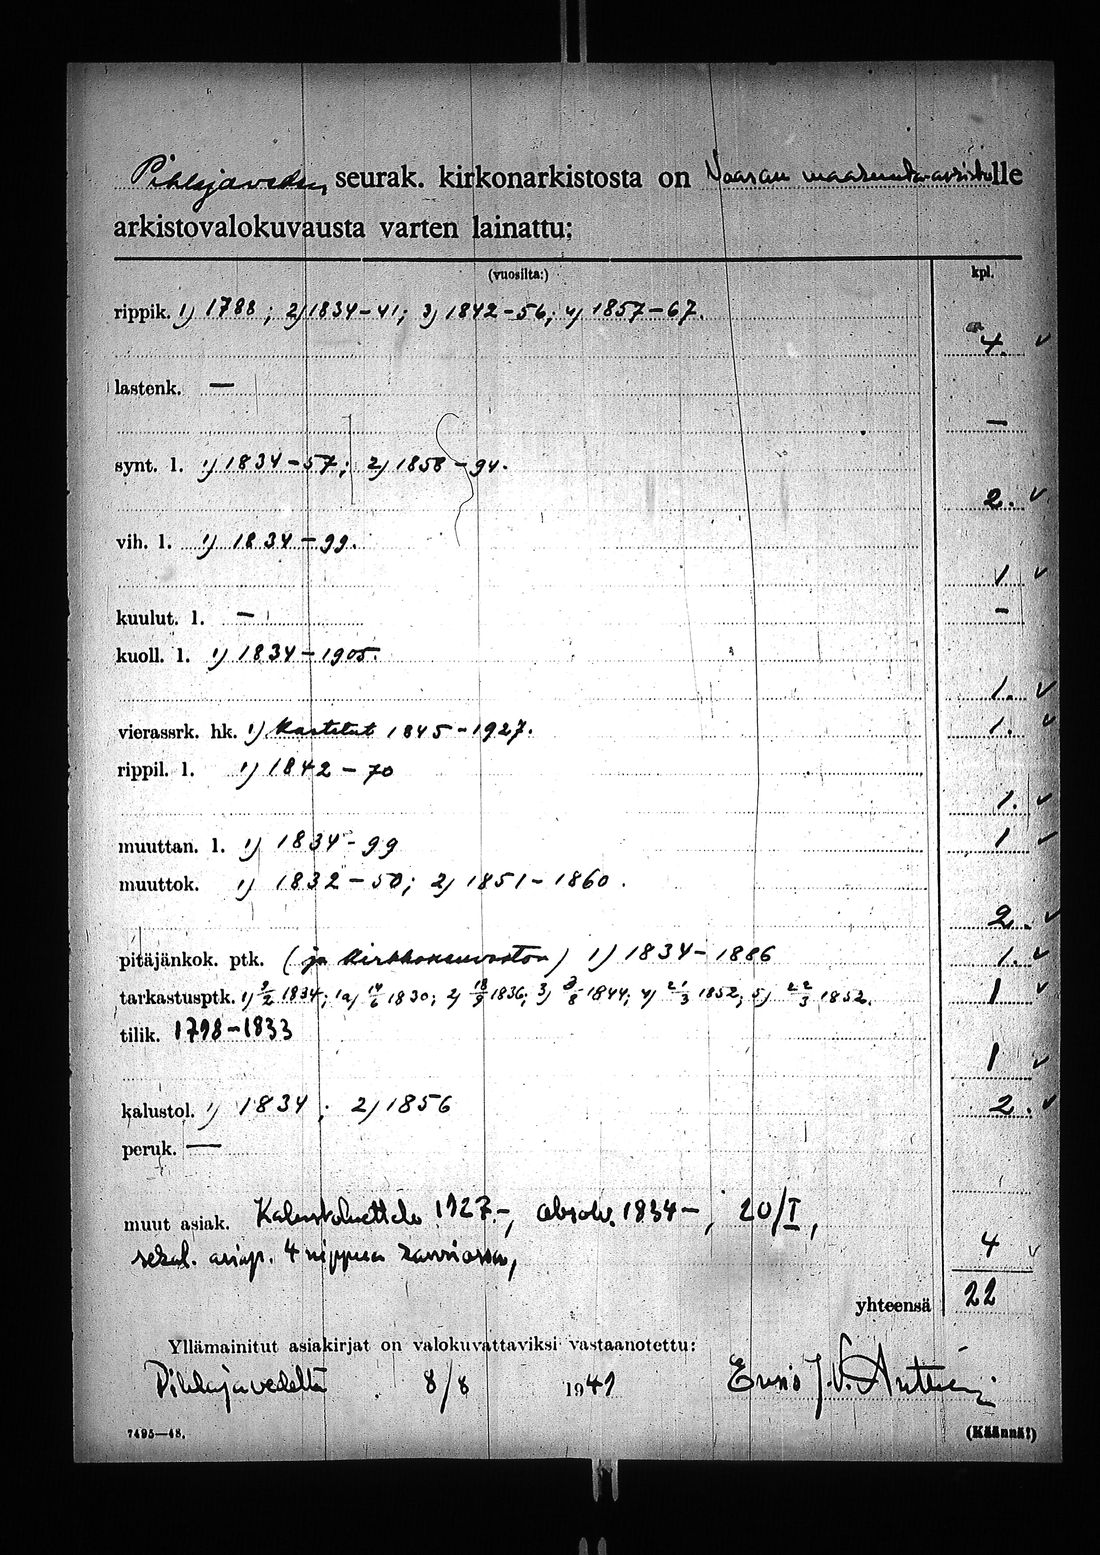 Pihlajaveden seurak. kirkonarkistosta on Vaasan maakunta-arkistolle
arkistovalokuvausta varten lainattu:
(vuosilta:) kpl.
rippik. 1) 1788; 2) 1834-41; 3) 1842-56; 4) 1857-67.
4. ✓
lastenk. —
—
synt. l. 1) 1834-57; 2) 1858-94.
2. ✓
vih. l. 1) 1834-99.
1 ✓
kuulut. l. — —
kuoll. l. 1) 1834-1905.
1. ✓
vierassrk. hk. 1) Kastetut 1845-1927. 1. ✓
rippil. l. 1) 1842-70
1. ✓
muuttan. l. 1) 1834-99 1 ✓
muuttok. 1) 1832-50; 2) 1851-1860.
2. ✓
pitäjänkok. ptk. (ja kirkkoneuvoston) 1) 1834-1886 1. ✓
tarkastusptk. 1) 9/2 1834; 1a) 14/6 1830; 2) 18/9 1836; 3) 3/8 1844; 4) 21/3 1852; 5) 22/3 1852. 1 ✓
tilik. 1798-1833
1 ✓
kalustol. 1) 1834; 2) 1856 2. ✓
peruk. —
muut asiak. Kalustoluettelo 1927-, absolv. 1834-, 20/I,
sekal. asiap. 4 nippua 4 ✓
yhteensä 22
Yllämainitut asiakirjat on valokuvattaviksi vastaanotettu:
Pihlajavedeltä 8/8 1949
7495—48. (Käännä!)